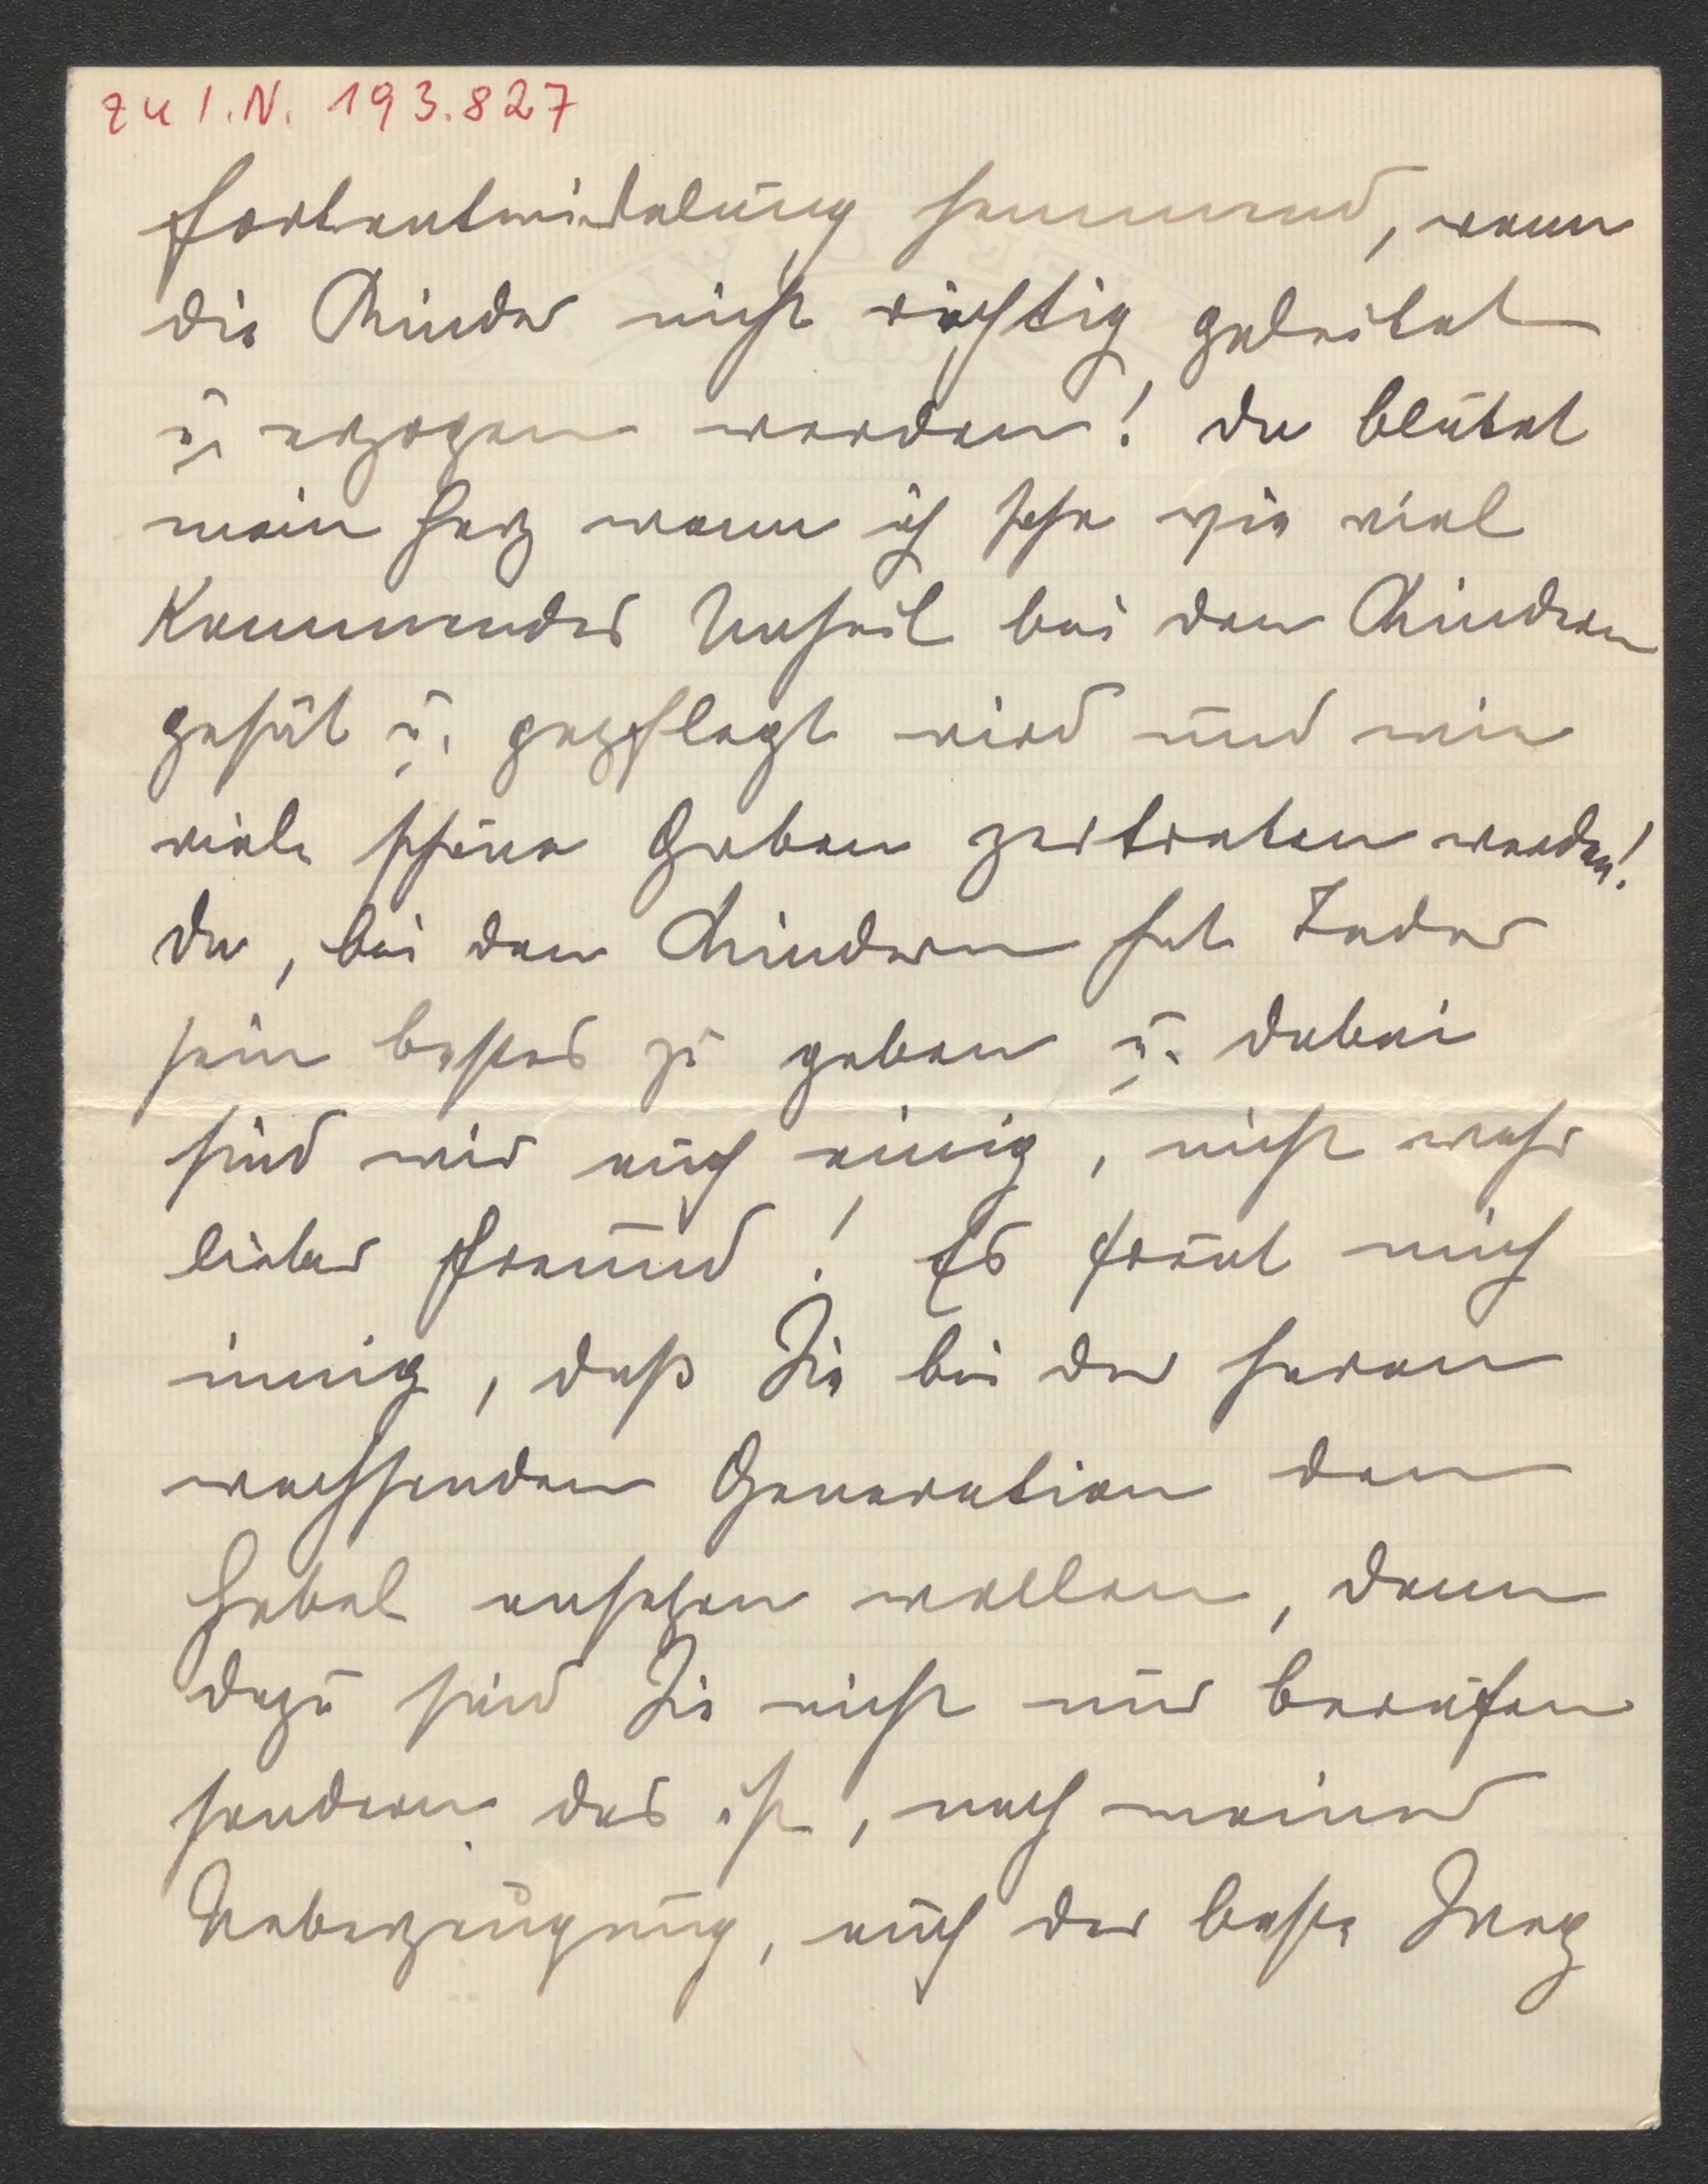 zu I.N. 193.827
Fortentwickelung hemmend, wenn
die Kinder nicht richtig geleitet
u. erzogen werden! Da blutet
mein Herz wenn ich sehe wie viel
kommendes Unheil bei den Kindern
gesät u. gepflegt wird und wie
viele schöne Gaben zertreten werden!
Da, bei den Kindern hat Jeder
sein bestes zu geben u. dabei
sind wir auch einig, nicht wahr
lieber Freund! Es freut mich
innig, daß Sie bei der heran
wachsenden Generation den
Hebel ansetzen wollen, denn
dazu sind Sie nicht nur berufen
sondern das ist, nach meiner
Ueberzeugung, auch der beste